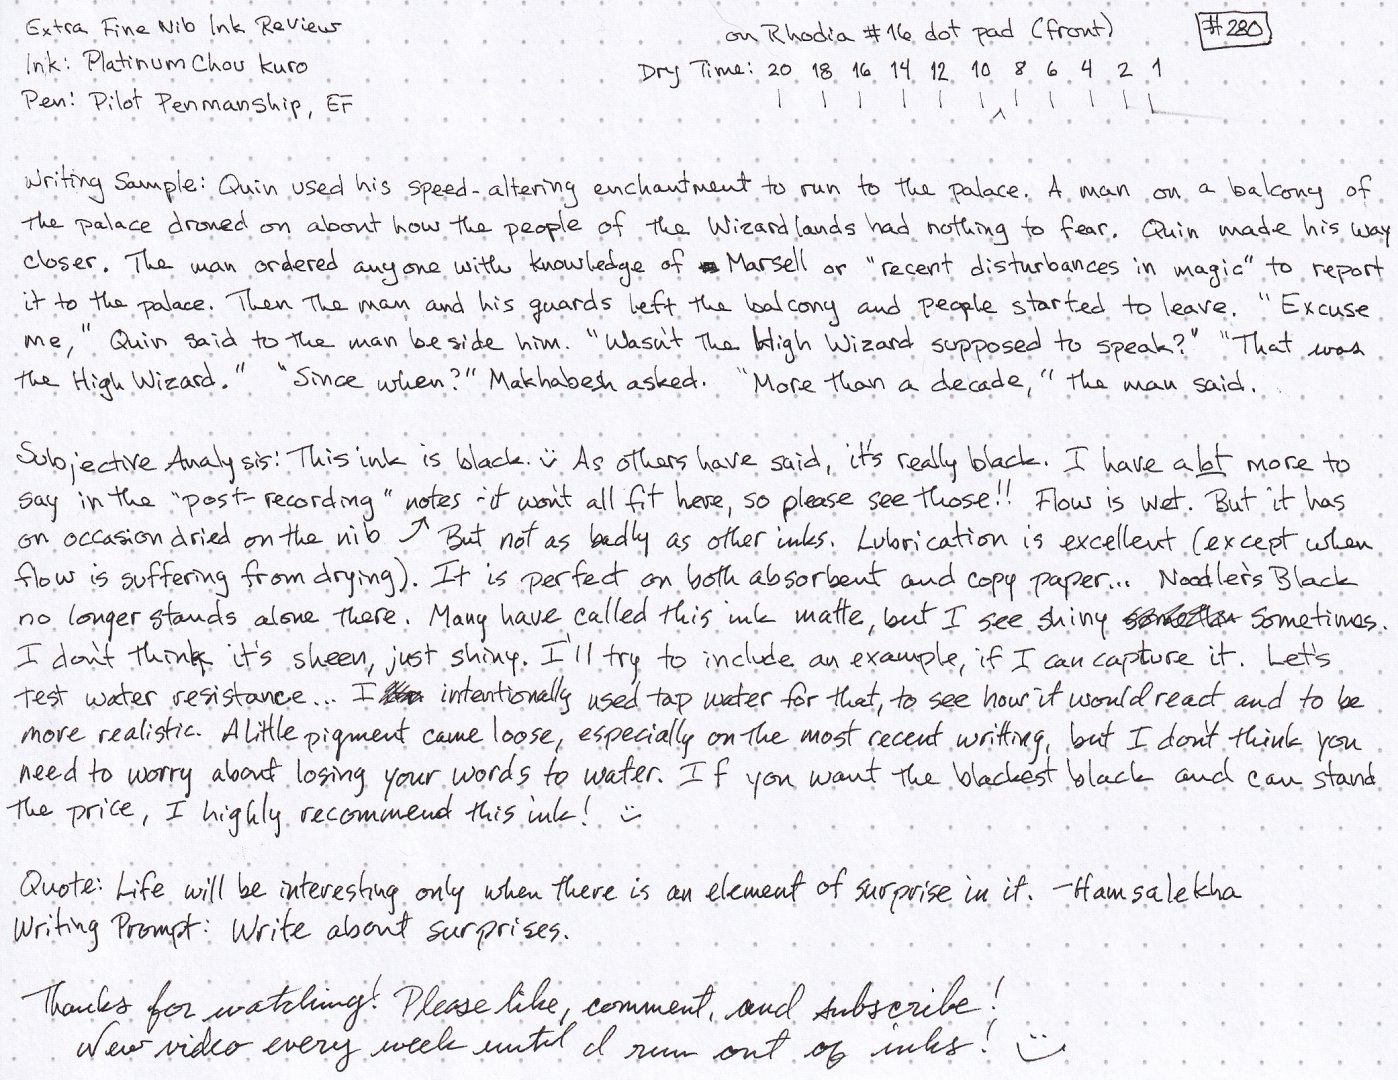 Extra Fine Nib Ink Review
on Rhodia #16 dot pad (front)
#280
Ink: Platinum Chou Kuro
Dry Time: 20 18 16 14 12 10 8 6 4 2 1
Pen: Pilot Penmanship, EF
Writing Sample: Quin used his speed-altering enchantment to run to the palace. A man on a balcony of
the palace droned on about how the people of the Wizardlands had nothing to fear. Quin made his way
closer. The man ordered anyone with knowledge of Marsell or "recent disturbances in magic" to report
it to the palace. Then the man and his guards left the balcony and people started to leave. "Excuse
me," Quin said to the man beside him. "Wasn't the High Wizard supposed to speak?" "That was
the High Wizard." "Since when?" Makhabesh asked. "More than a decade," the man said.
Subjective Analysis: This ink is black. :) As others have said, it's really black. I have a lot more to
say in the "post-recording" notes - it won't all fit here, so please see those!! Flow is wet. But it has
on occasion dried on the nib ↗ But not as badly as other inks. Lubrication is excellent (except when
flow is suffering from drying). It is perfect on both absorbent and copy paper... Noodler's Black
no longer stands alone there. Many have called this ink matte, but I see shiny sometimes.
I don't think it's sheen, just shiny. I'll try to include an example, if I can capture it. Let's
test water resistance... I intentionally used tap water for that, to see how it would react and to be
more realistic. A little pigment came loose, especially on the most recent writing, but I don't think you
need to worry about losing your words to water. If you want the blackest black and can stand
the price, I highly recommend this ink! :)
Quote: Life will be interesting only when there is an element of surprise in it. -Hamsalekha
Writing Prompt: Write about surprises.
Thanks for watching! Please like, comment, and subscribe!
New video every week until I run out of inks! :)